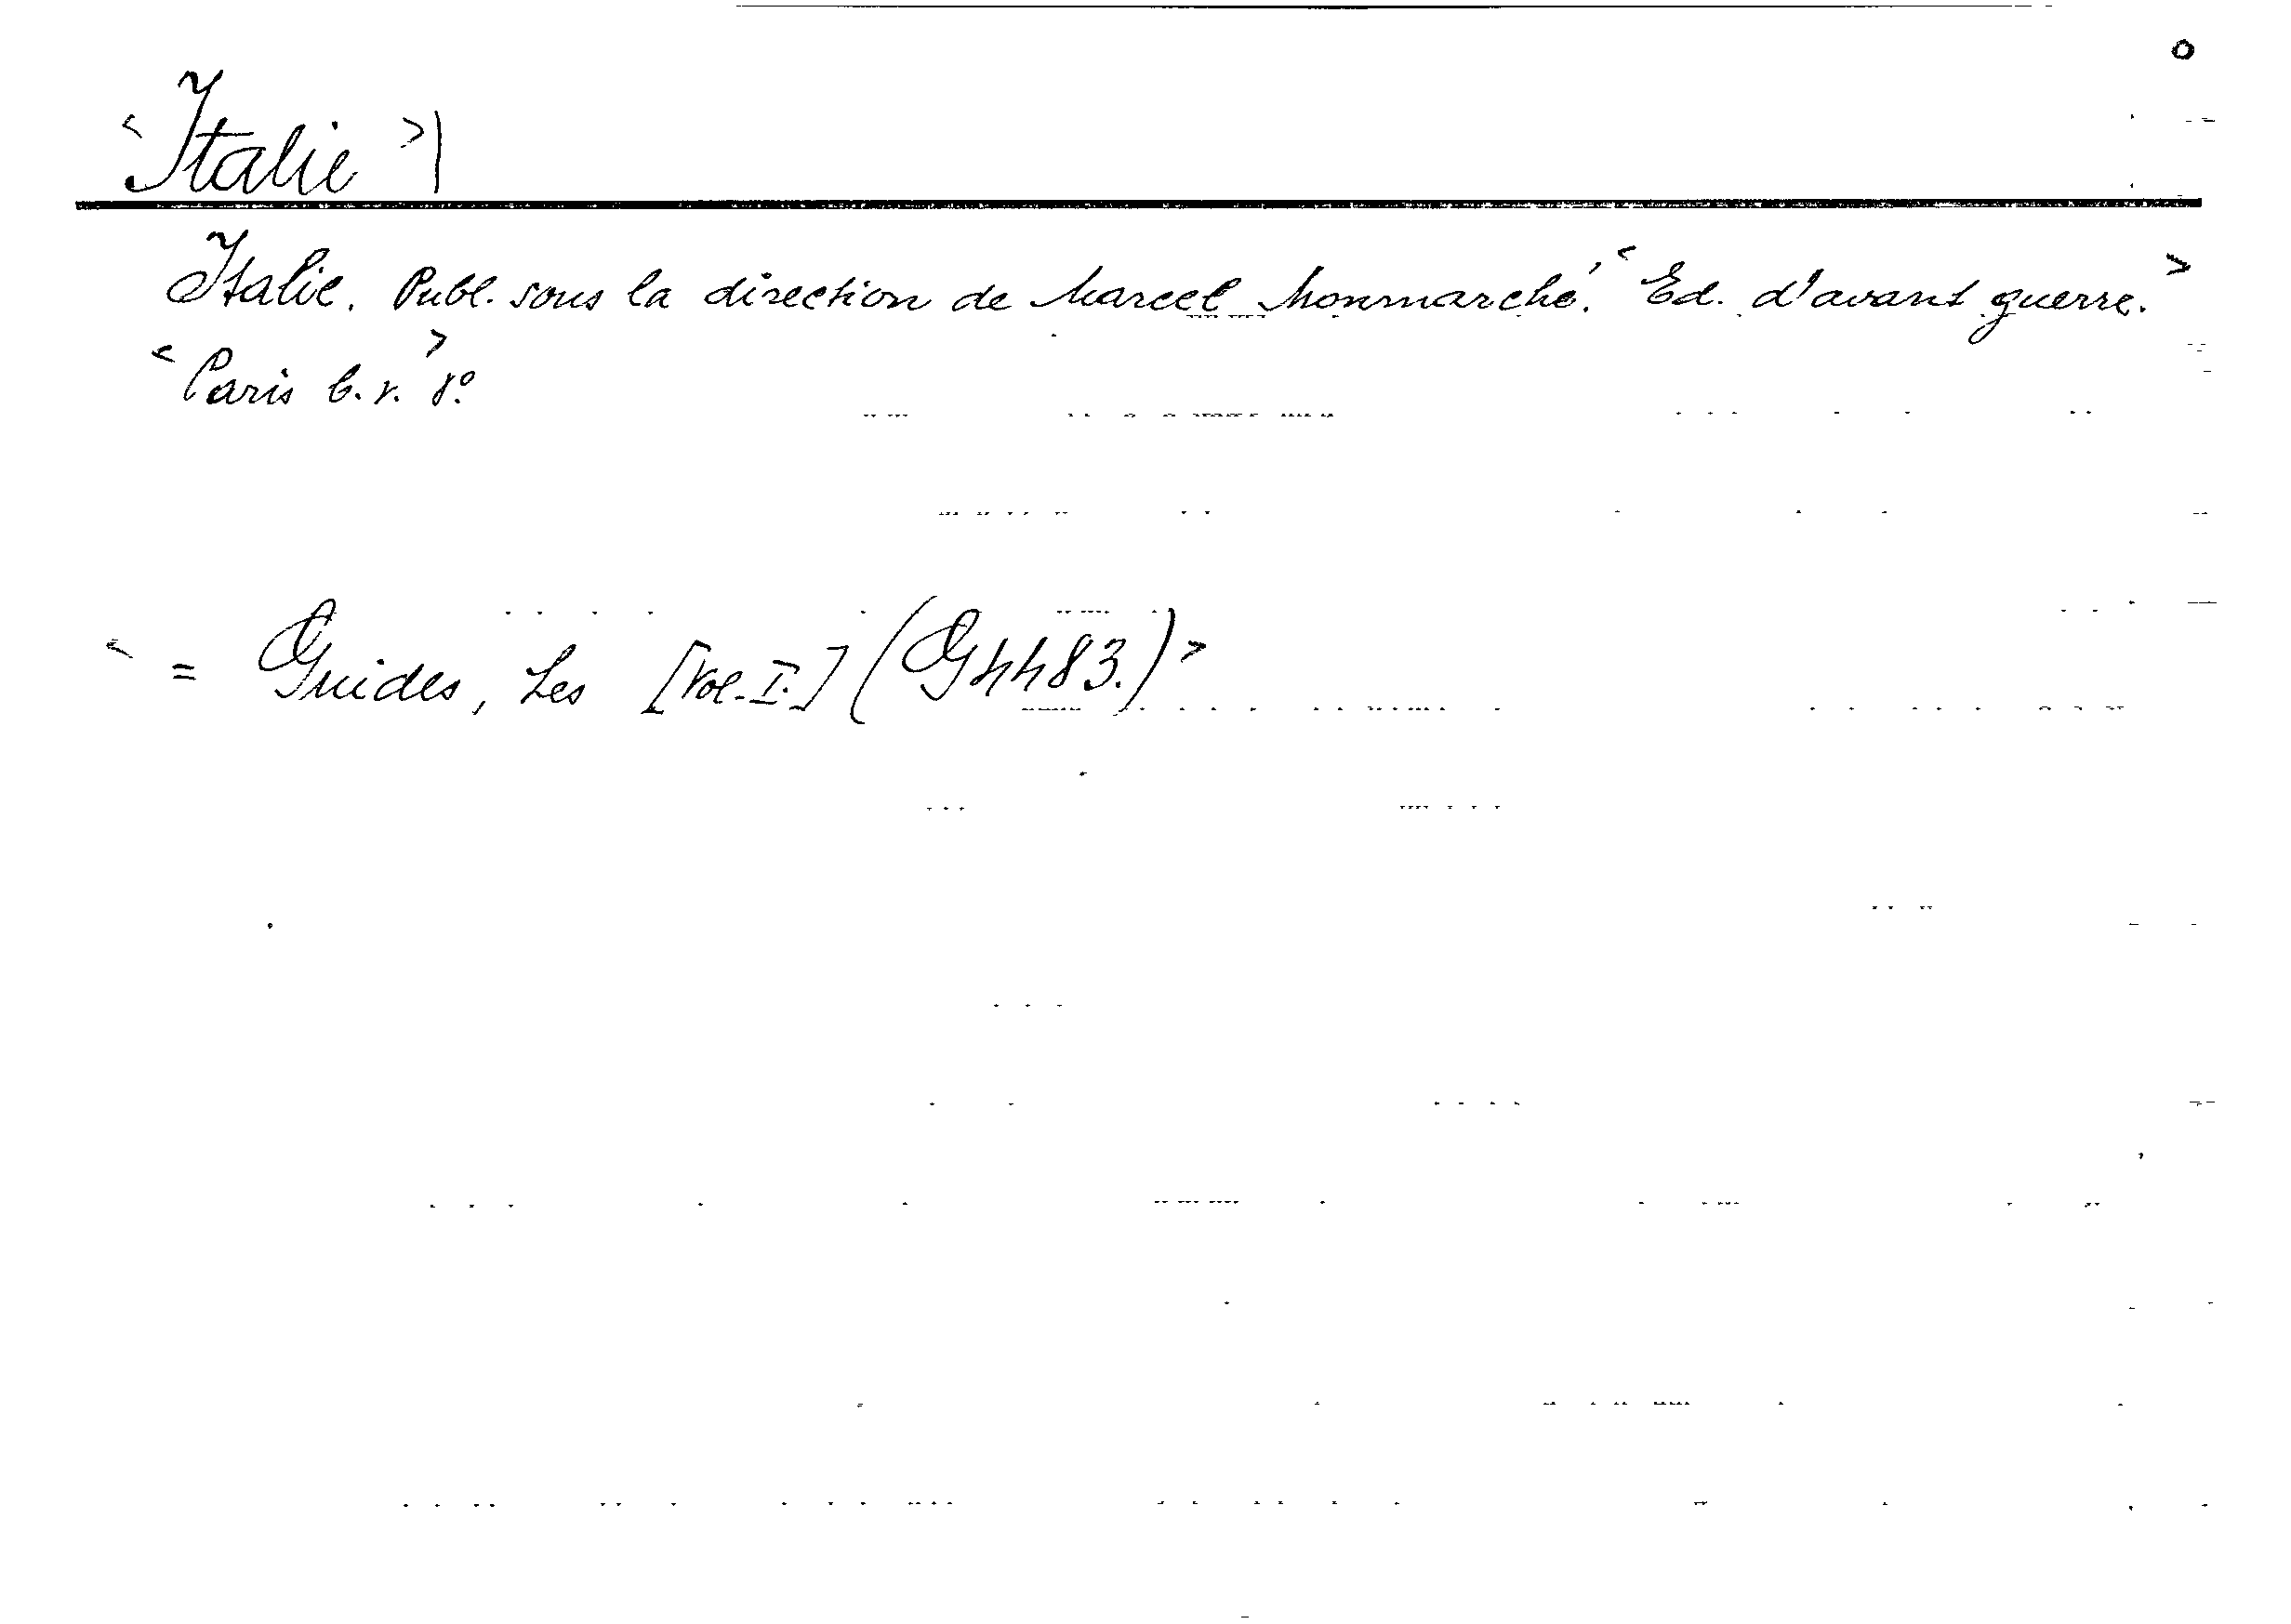 <Italie>|
Italie. Publ. sous la direction de Marcel Monmarché. <Ed. d'avant guerre.>
<Paris b. r.> 8°.
< = Guides, Les [Vol. I.] (G 4483.)>